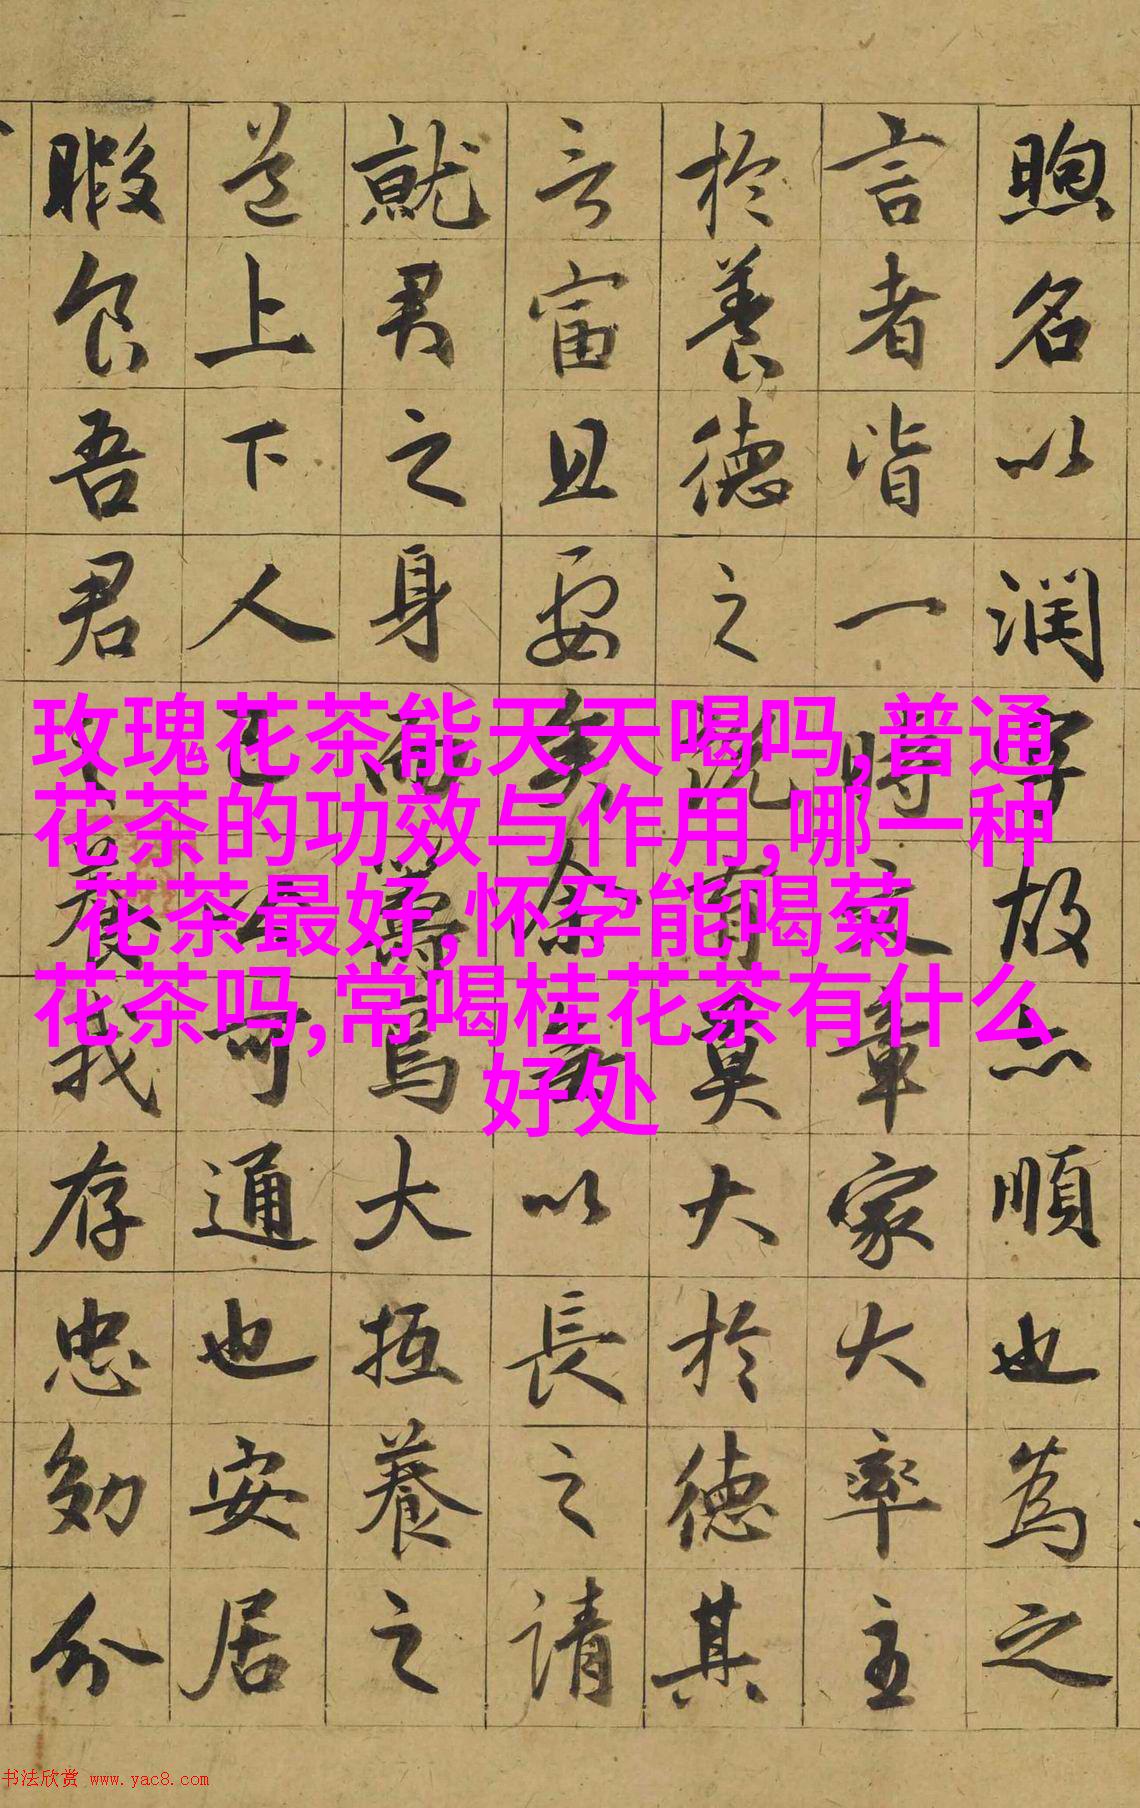 煦名以润字故亦順也為之
言者皆一時文章家大率主
於養德之說有莫大於德其
言富且要矣余以長之請
就君之身而焉大抵養之
道上下人己可通也安居
暇食吾君養我存忠効分
玫瑰花茶能天天喝吗,普通
花茶的功效与作用,哪一种
花茶最好,怀孕能喝菊
花茶吗,常喝桂花茶有什么
好处
书法欣赏 www.yac8.com